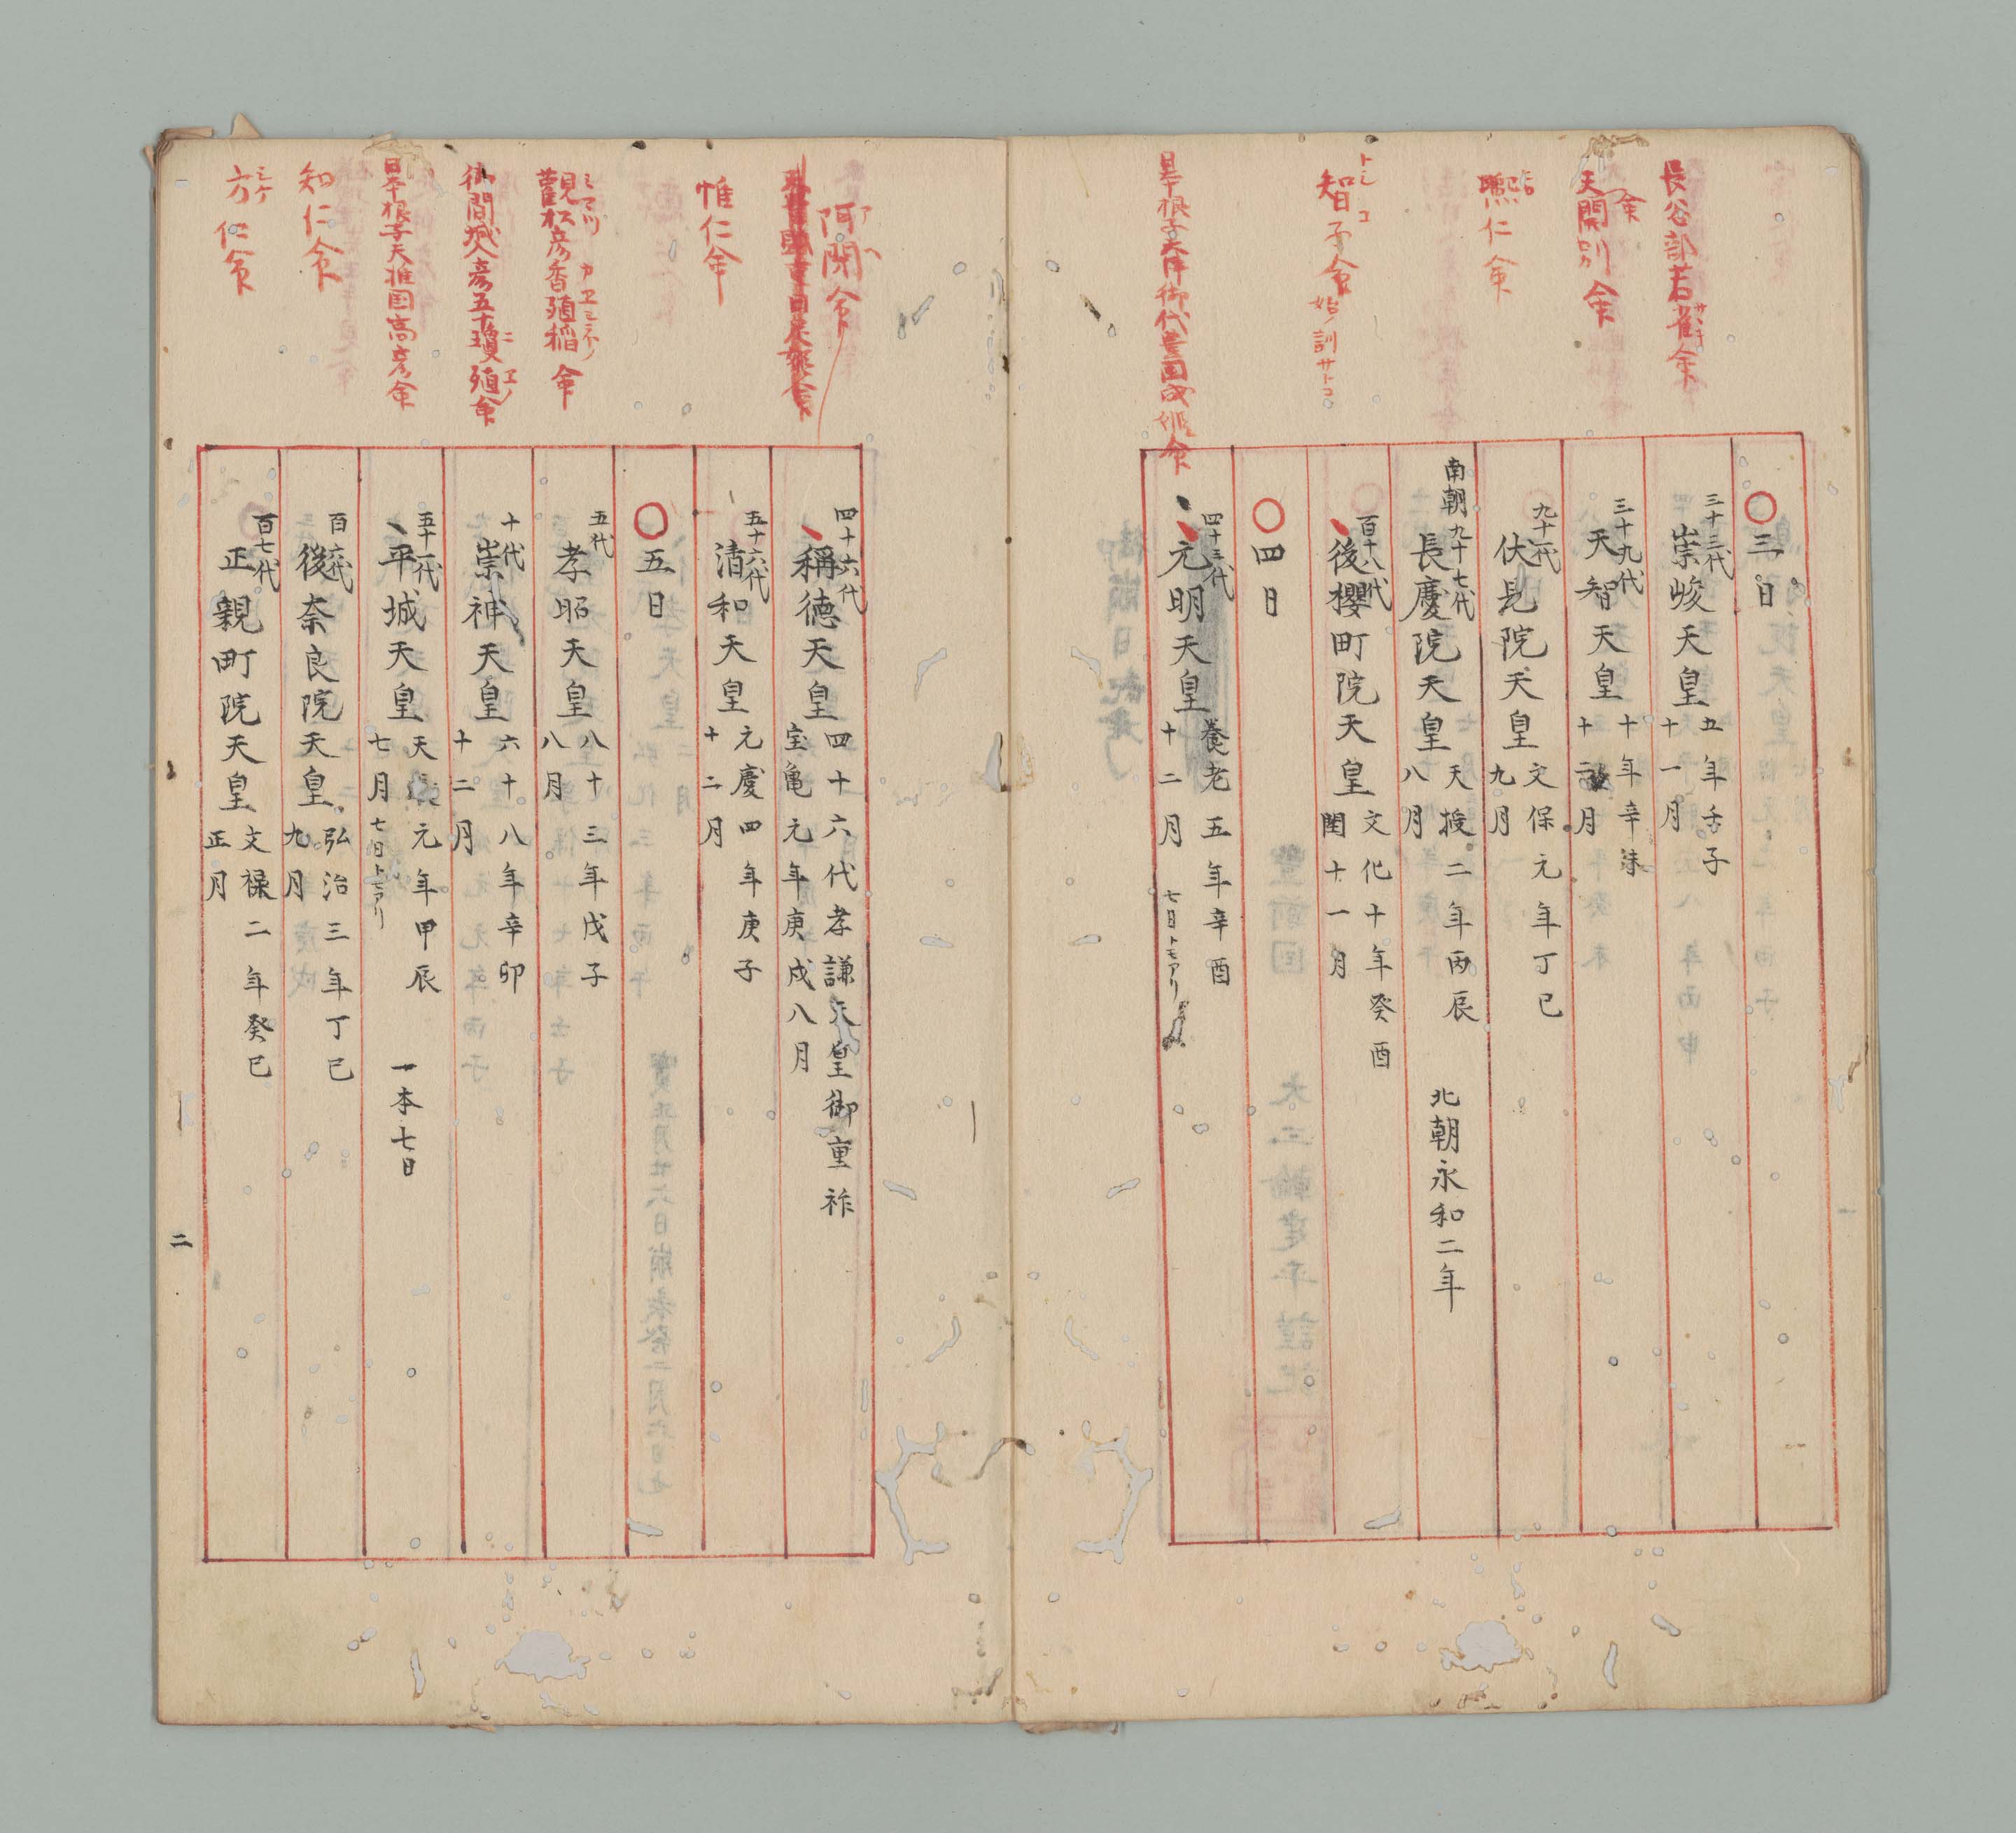 〇三日
長谷部若雀命
サヽキ
三十三代
崇峻天皇
五年壬子
十一月
天開別命
命
三十九代
天智天皇
十年辛未
十二月
凞仁命
九十二代
伏見院天皇
文保元年丁巳
九月
南朝九十七代
長慶院天皇
天授二年丙辰
八月
北朝永和二年
智子命
トシコ
始ノ訓サトコ
百十八代
後櫻町院天皇
文化十年癸酉
閏十一月
〇四日
日本根子天津御代豊国成姫命
四十三代
元明天皇
養老五年辛酉
十二月
七日トモアリ
阿閇命
アヘ
四十六代
稱徳天皇
四十六代孝謙天皇御重祚
宝亀元年庚戌八月
惟仁命
五十六代
清和天皇
元慶四年庚子
十二月
〇五日
觀松彦香殖稲命
ミマツ カヱシネノ
五代
孝昭天皇
八十三年戊子
八月
御間城入彦五十瓊殖命
ニヱノ
十代
崇神天皇
六十八年辛卯
十二月
日本根子天推国高彦命
五十一代
平城天皇
天長元年甲辰
七月
七日トモアリ
一本七日
知仁命
百六代
後奈良院天皇
弘治三年丁巳
九月
方仁命
ミケ
百七代
正親町院天皇
文禄二年癸巳
正月
二